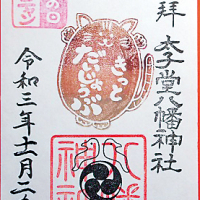 拝
太子堂八幡神社
きっと
だいじょうぶ
の日
令和三年十一月二